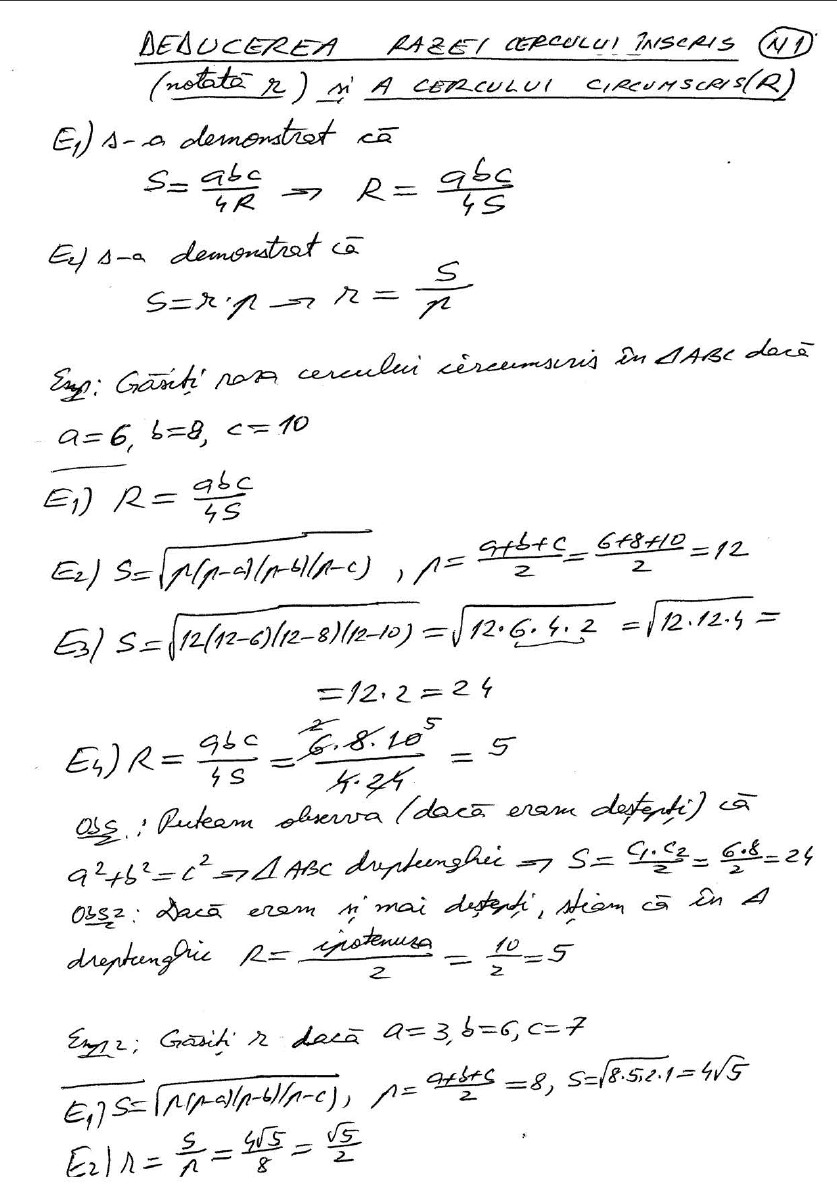 DEDUCEREA RAZEI CERCULUI ÎNSCRIS N1
(notată r) și A CERCULUI CIRCUMSCRIS(R)
E1) s-a demonstrat că
S = abc/4R → R = abc/4S
E2) s-a demonstrat că
S = r·p → r = S/p
Exp: Găsiți raza cercului circumscris în ΔABC dacă
a=6, b=8, c=10
E1) R = abc/4S
E2) S=√p(p-a)(p-b)(p-c) , p = a+b+c/2 = 6+8+10/2 = 12
E3) S=√12(12-6)(12-8)(12-10) = √12·6·4·2 = √12·12·4 =
=12·2=24
E4) R = abc/4S = 6·8·10/4·24 = 5
2 5
Obs1: Puteam observa (dacă eram deștepți) că
a²+b²=c² → ΔABC dreptunghic → S = c1·c2/2 = 6·8/2 = 24
Obs2: Dacă eram și mai deștepți, știam că în Δ
dreptunghic R = ipotenuza/2 = 10/2 = 5
Exp2: Găsiți r dacă a=3, b=6, c=7
E1) S=√p(p-a)(p-b)(p-c), p = a+b+c/2 = 8, S=√8·5·2·1=4√5
E2) r = S/p = 4√5/8 = √5/2